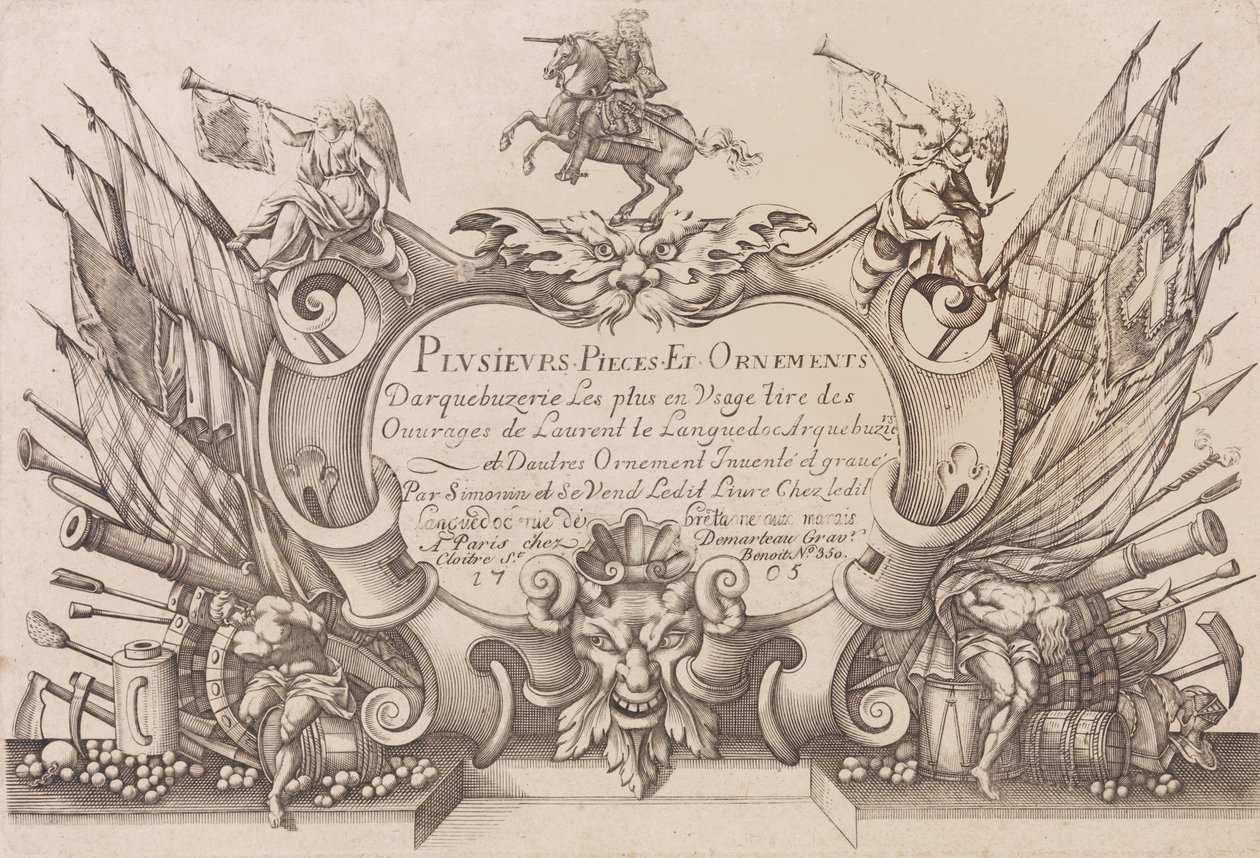 PLVSIEVRS · PIECES · ET · ORNEMENTS
Darquebuzerie Les plus en Vsage tire des
Ouurages de Laurent le Languedoc Arquebuzie rs
et Dautres Ornement Inuenté et graué
Par Simonin et Se Vend Ledit Liure Chez ledit
Languedoc rue de bretagne aux marais
A Paris chez Demarteau Grav.r
Cloitre S.t Benoit N.o 350.
17 05